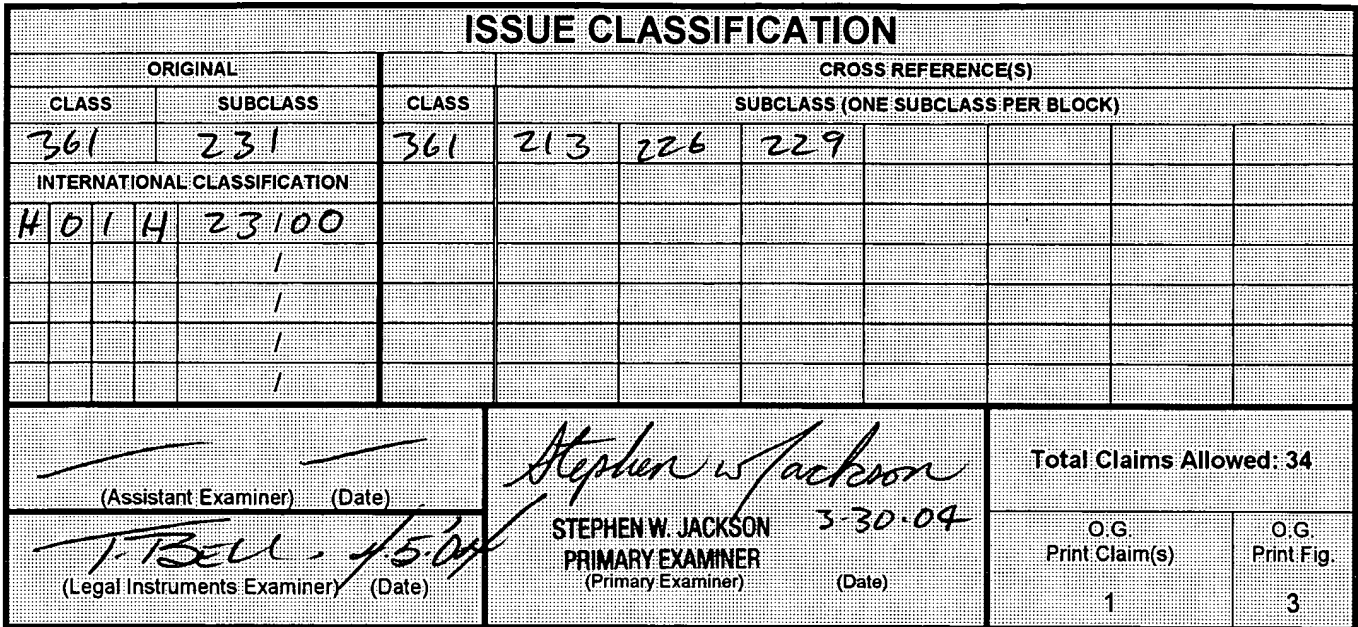 ISSUE CLASSIFICATION
ORIGINAL CROSS REFERENCE(S)
CLASS SUBCLASS CLASS SUBCLASS (ONE SUBCLASS PER BLOCK)
361 231 361 213 226 229
INTERNATIONAL CLASSIFICATION
H 0 1 H 23/00
/
/
/
/
Stephen W Jackson
(Assistant Examiner) (Date)
T. BELL 4.5.04
(Legal Instruments Examiner) (Date)
STEPHEN W. JACKSON 3-30-04
PRIMARY EXAMINER
(Primary Examiner) (Date)
Total Claims Allowed: 34
O.G. O.G.
Print Claim(s) Print Fig.
1 3